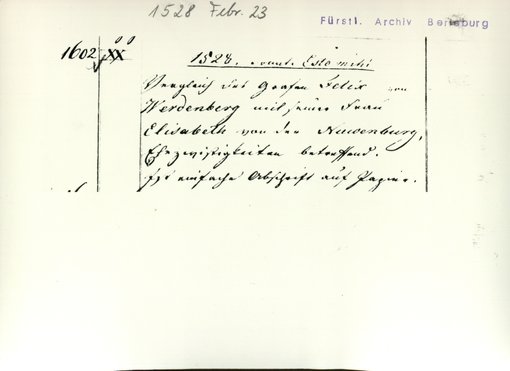 1528 Febr. 23
Fürstl. Archiv Berleburg
1602 XX
1528. Estomihi
Vergleich des Grafen Felix von
Werdenberg mit seiner Frau
Elisabeth von der Nuwenburg,
Ehezwistigkeiten betreffend.
Ist einfache Abschrift auf Papier.